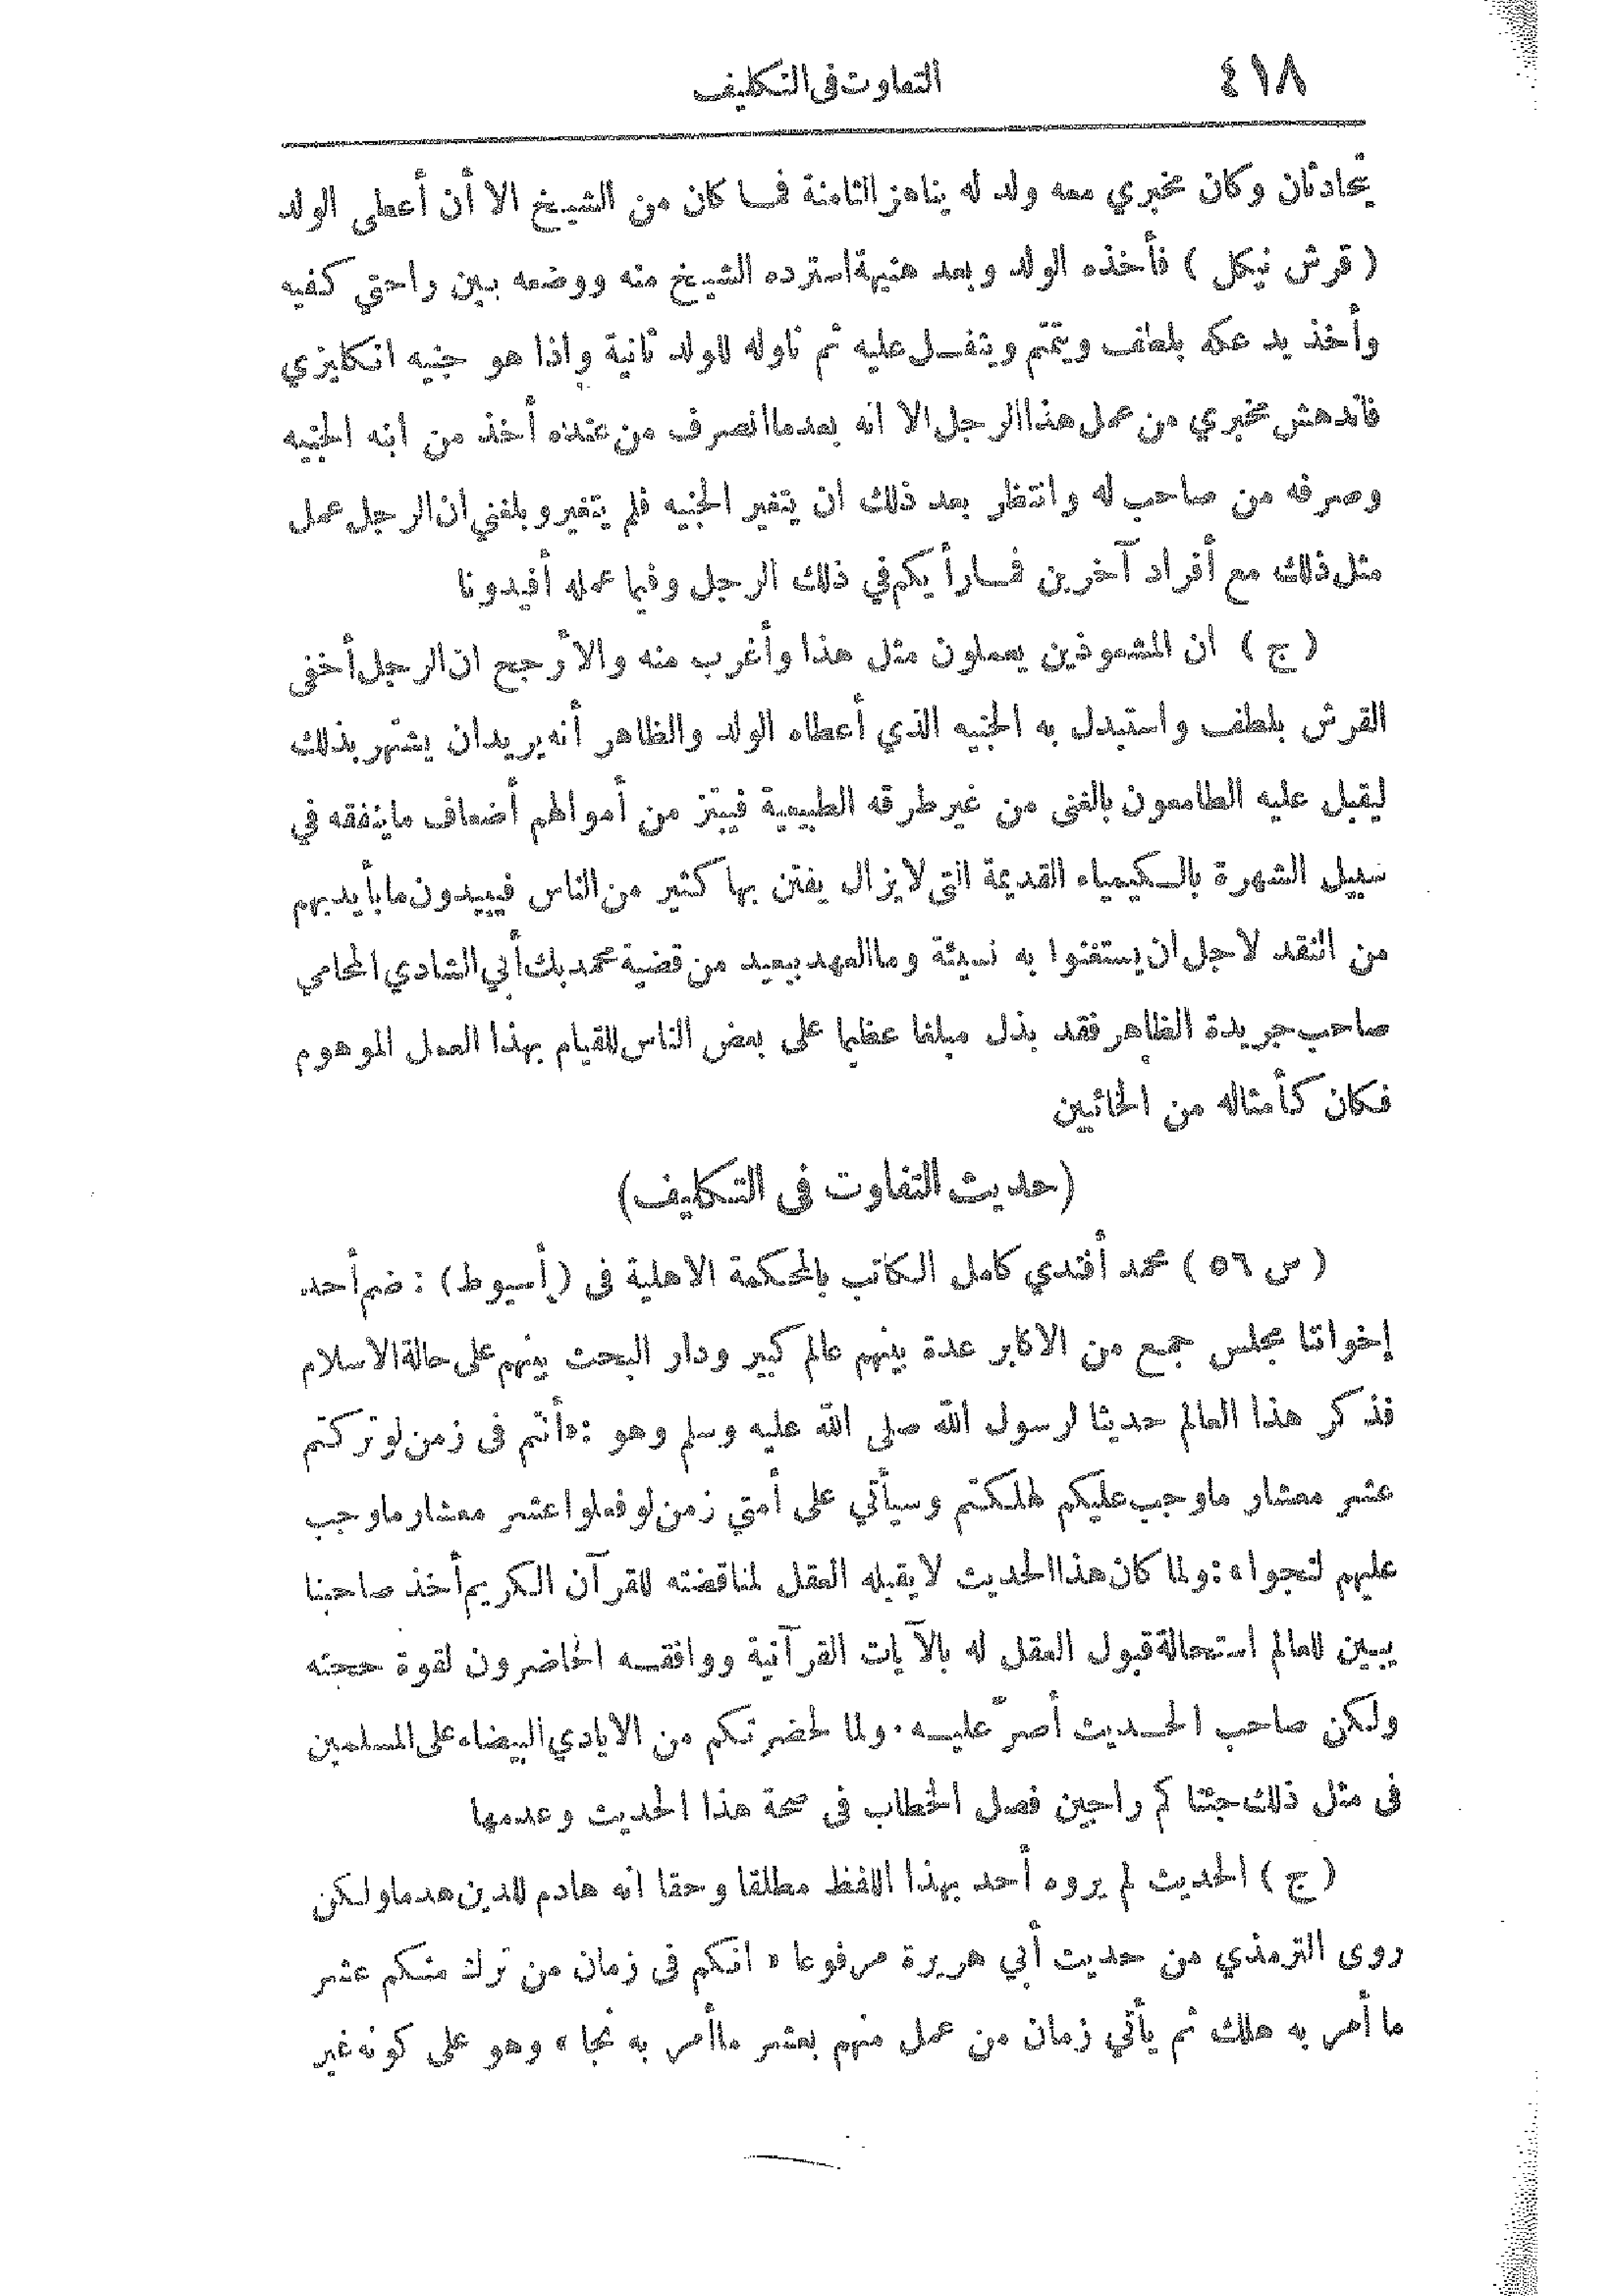 ٤١٨ التفاوت فى التكليف
يتحادثان وكان مخبري معه ولد له يناهز الثامنة فما كان من الشيخ الا أن أعطى الولد
( قرش نيكل ) فأخذه الولد وبعد هنيهة استرده الشيخ منه ووضعه بين راحتي كفيه
وأخذ يدعكه بلطف ويتمتم ويتفل عليه ثم ناوله للولد ثانية واذا هو جنيه انكليزي
فاندهش مخبري من عمل هذا الرجل الا انه بعدما انصرف من عنده أخذ من ابنه الجنيه
وصرفه من صاحب له وانتظر بعد ذلك ان يتغير الجنيه فلم يتغير وبلغني ان الرجل عمل
مثل ذلك مع أفراد آخرين فما رأيكم في ذلك الرجل وفيما عمله أفيدونا
( ج ) ان المشعوذين يعملون مثل هذا وأغرب منه والأرجح ان الرجل أخفى
القرش بلطف واستبدل به الجنيه الذي أعطاه الولد والظاهر أنه يريد ان يشتهر بذلك
ليقبل عليه الطامعون بالغنى من غير طرقه الطبيعية فيبتز من أموالهم أضعاف ما ينفقه في
سبيل الشهرة بالكيمياء القديمة التي لا يزال يفتن بها كثير من الناس فيبيدون ما بأيديهم
من النقد لاجل ان يستغنوا به نسيئة وما العهد ببعيد من قضية محمد بك أبي الشادي المحامي
صاحب جريدة الظاهر فقد بذل مبلغا عظيما على بعض الناس للقيام بهذا العمل الموهوم
فكان كأمثاله من الخائبين
(حديث التفاوت فى التكليف)
( س ٥٦ ) محمد أفندي كامل الكاتب بالمحكمة الاهلية فى (أسيوط) : ضم أحد
إخواننا مجلس جمع من الاكابر عدة بينهم عالم كبير ودار البحث بينهم على حالة الاسلام
فذكر هذا العالم حديثا لرسول الله صلى الله عليه وسلم وهو : «أنتم فى زمن لو تركتم
عشر معشار ما وجب عليكم لهلكتم وسيأتي على أمتي زمن لو فعلوا عشر معشار ما وجب
عليهم لنجوا» : ولما كان هذا الحديث لا يقبله العقل لمناقضته للقرآن الكريم أخذ صاحبنا
يبين للعالم استحالة قبول العقل له بالآيات القرآنية ووافقه الحاضرون لقوة حجته
ولكن صاحب الحديث أصرّ عليه . ولما لحضرتكم من الايادي البيضاء على المسلمين
فى مثل ذلك جئناكم راجين فصل الخطاب فى صحة هذا الحديث وعدمها
( ج ) الحديث لم يروه أحد بهذا اللفظ مطلقا وحقا انه هادم للدين هدما ولكن
روى الترمذي من حديث أبي هريرة مرفوعا « انكم فى زمان من ترك منكم عشر
ما أمر به هلك ثم يأتي زمان من عمل منهم بعشر ما أمر به نجا » وهو على كونه غير